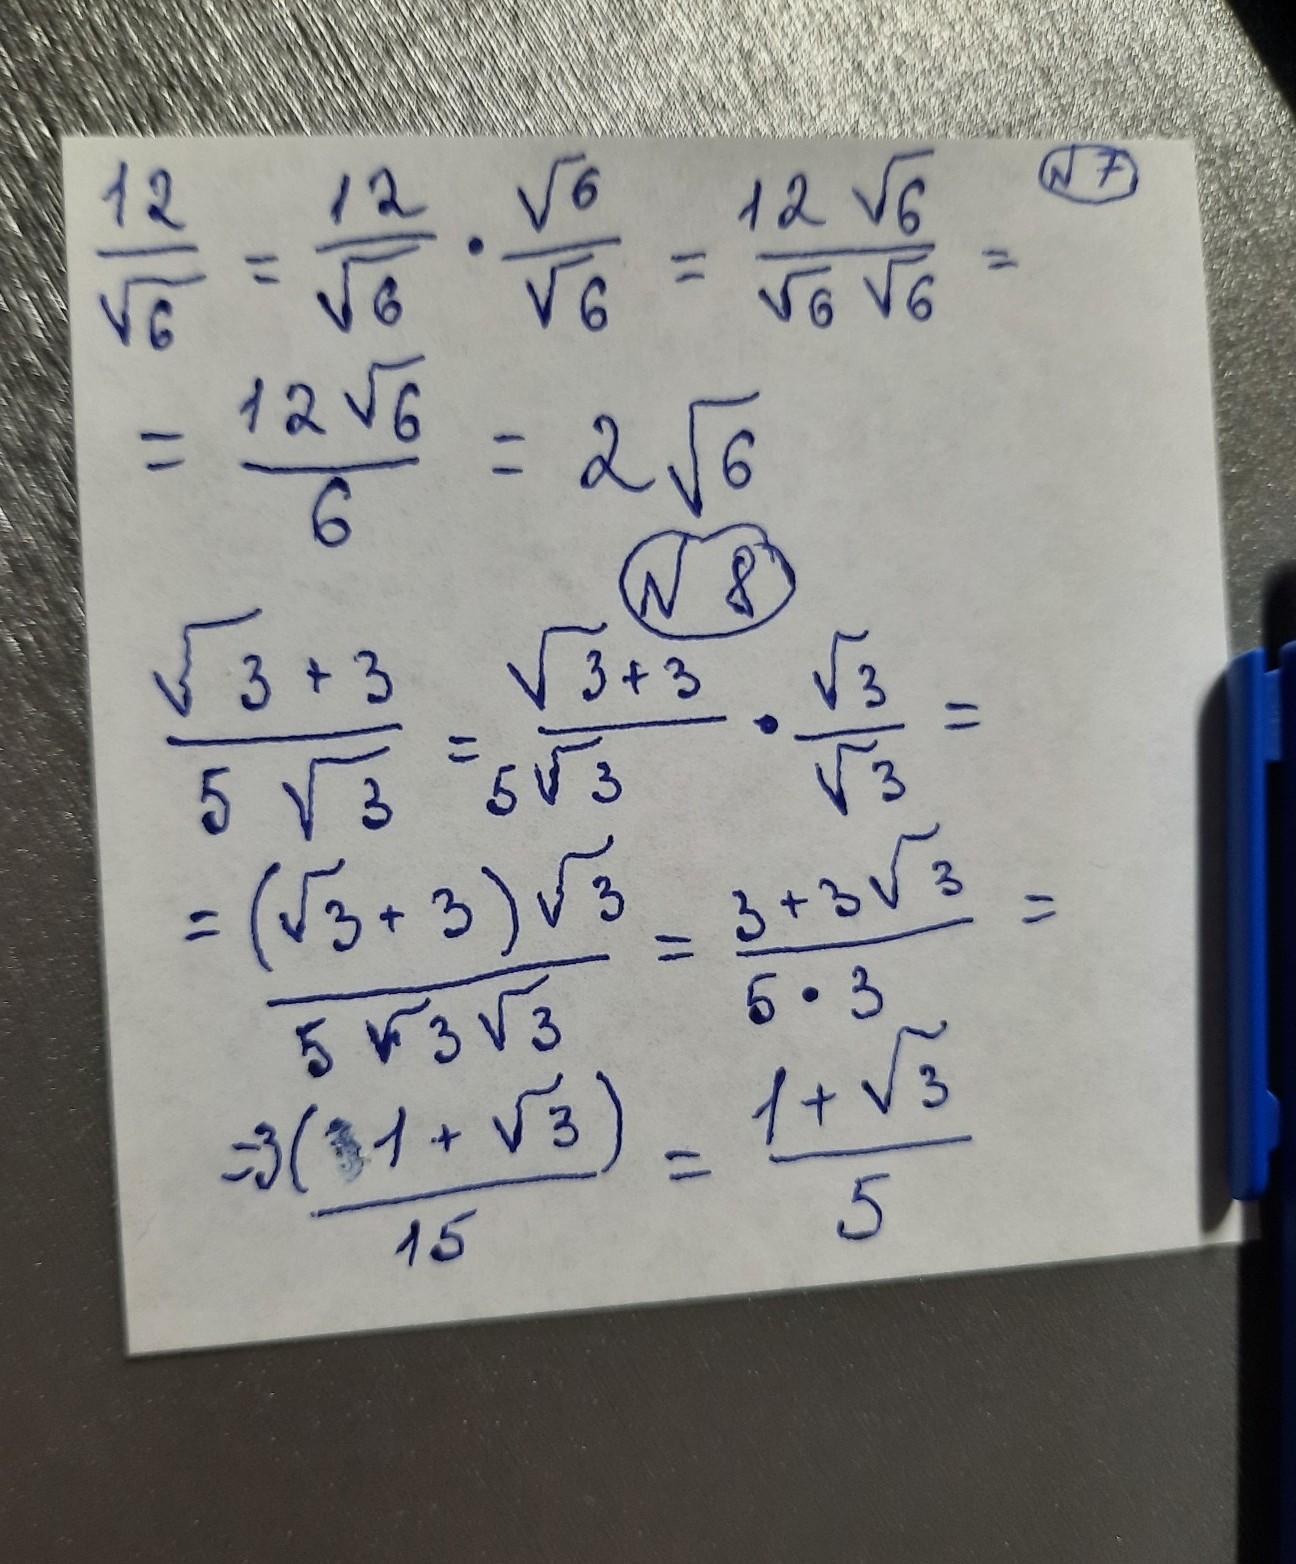 12/√6 = 12/√6 · √6/√6 = 12√6/√6√6 = N7
= 12√6/6 = 2√6
N 8
√3+3/5√3 = √3+3/5√3 · √3/√3 =
= (√3+3)√3/5√3√3 = 3+3√3/5·3 =
=3(1+√3)/15 = 1+√3/5